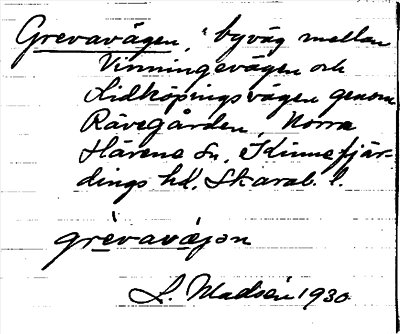 Grevavägen, byväg mellan
Vinningevägen och
Lidköpingsvägen genom
Rävegården, Norra
Härene sn, Kinnefjär-
dings hd, Skarab. l.
grèvavæjən
L. Madsén 1930